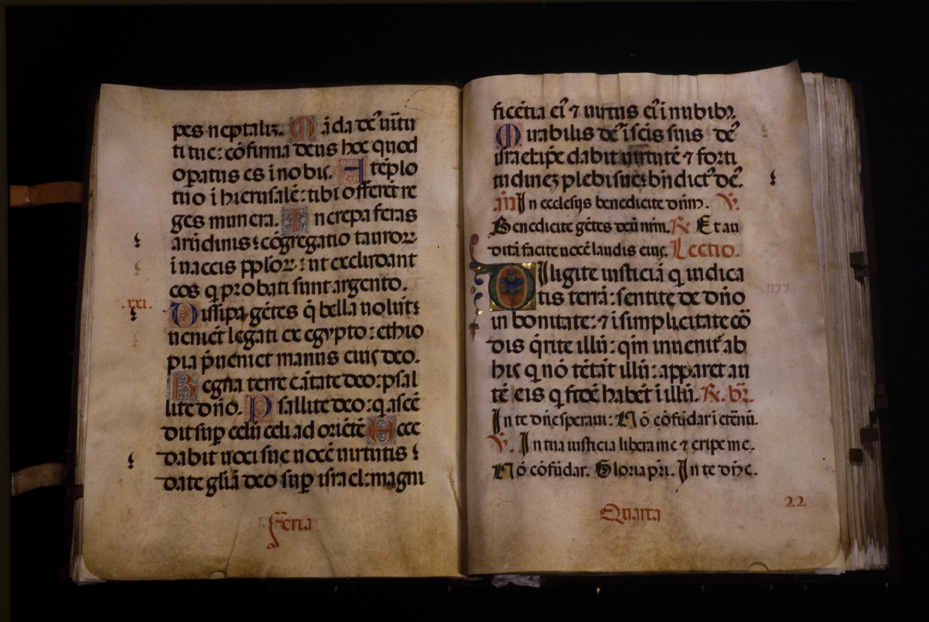 pes neptaliz. Māda de᷒ uirtu
ti tue: cōfirma deus hoc quod
opatus es i nobis. A tēplo
tuo i hierusalē: tibi offerēt re
ges munera. Increpa feras
arūdinis: cōgregatio tauroꝝ
i uaccis pploꝝ: ut excludant
eos q probati sunt argento.
.xxi.
Dissipa gētes q bella uolūt:
uenient legati ex egypto: ethio
pia pueniet manus eius deo.
Regna terre cātate deo: psal
lite dn̄o. Psallite deo: q ascē
dit sup celū celi ad oriētē Ecce
dabit uoci sue uocē uirtutis:
date gliā deo sup israel: magni
Feria
ficētia ei᷒ ⁊ uirtus ei᷒ i nubibꝫ.
Mirabilis de᷒ i scīs suis de᷒
israel ipe dabit uirtutē ⁊ forti
tudinez plebi sue: bn̄dict᷒ de᷒.
añ In ecclesijs benedicite dn̄o. V̄.
Benedicite gētes deū nr̄m. R̄. Et au
ditā facite uocē laudis eius. Lectio.
Diligite iusticiā q iudica
tis terrā: sentite de dn̄o
in bonitate: ⁊ i simplicitate co᷑
dis q̄rite illū: qm̄ inuenit᷑ ab
his q nō tētāt illū: apparet au
tē eis q fidē habēt i illū. R̄. br̄.
In te dn̄e speraui: Nō cōfūdar i eternū.
V̄. In tua iusticia libera me ⁊ eripe me.
Nō cōfūdar. Gloria pr̄i. In te dn̄e.
Quarta
22